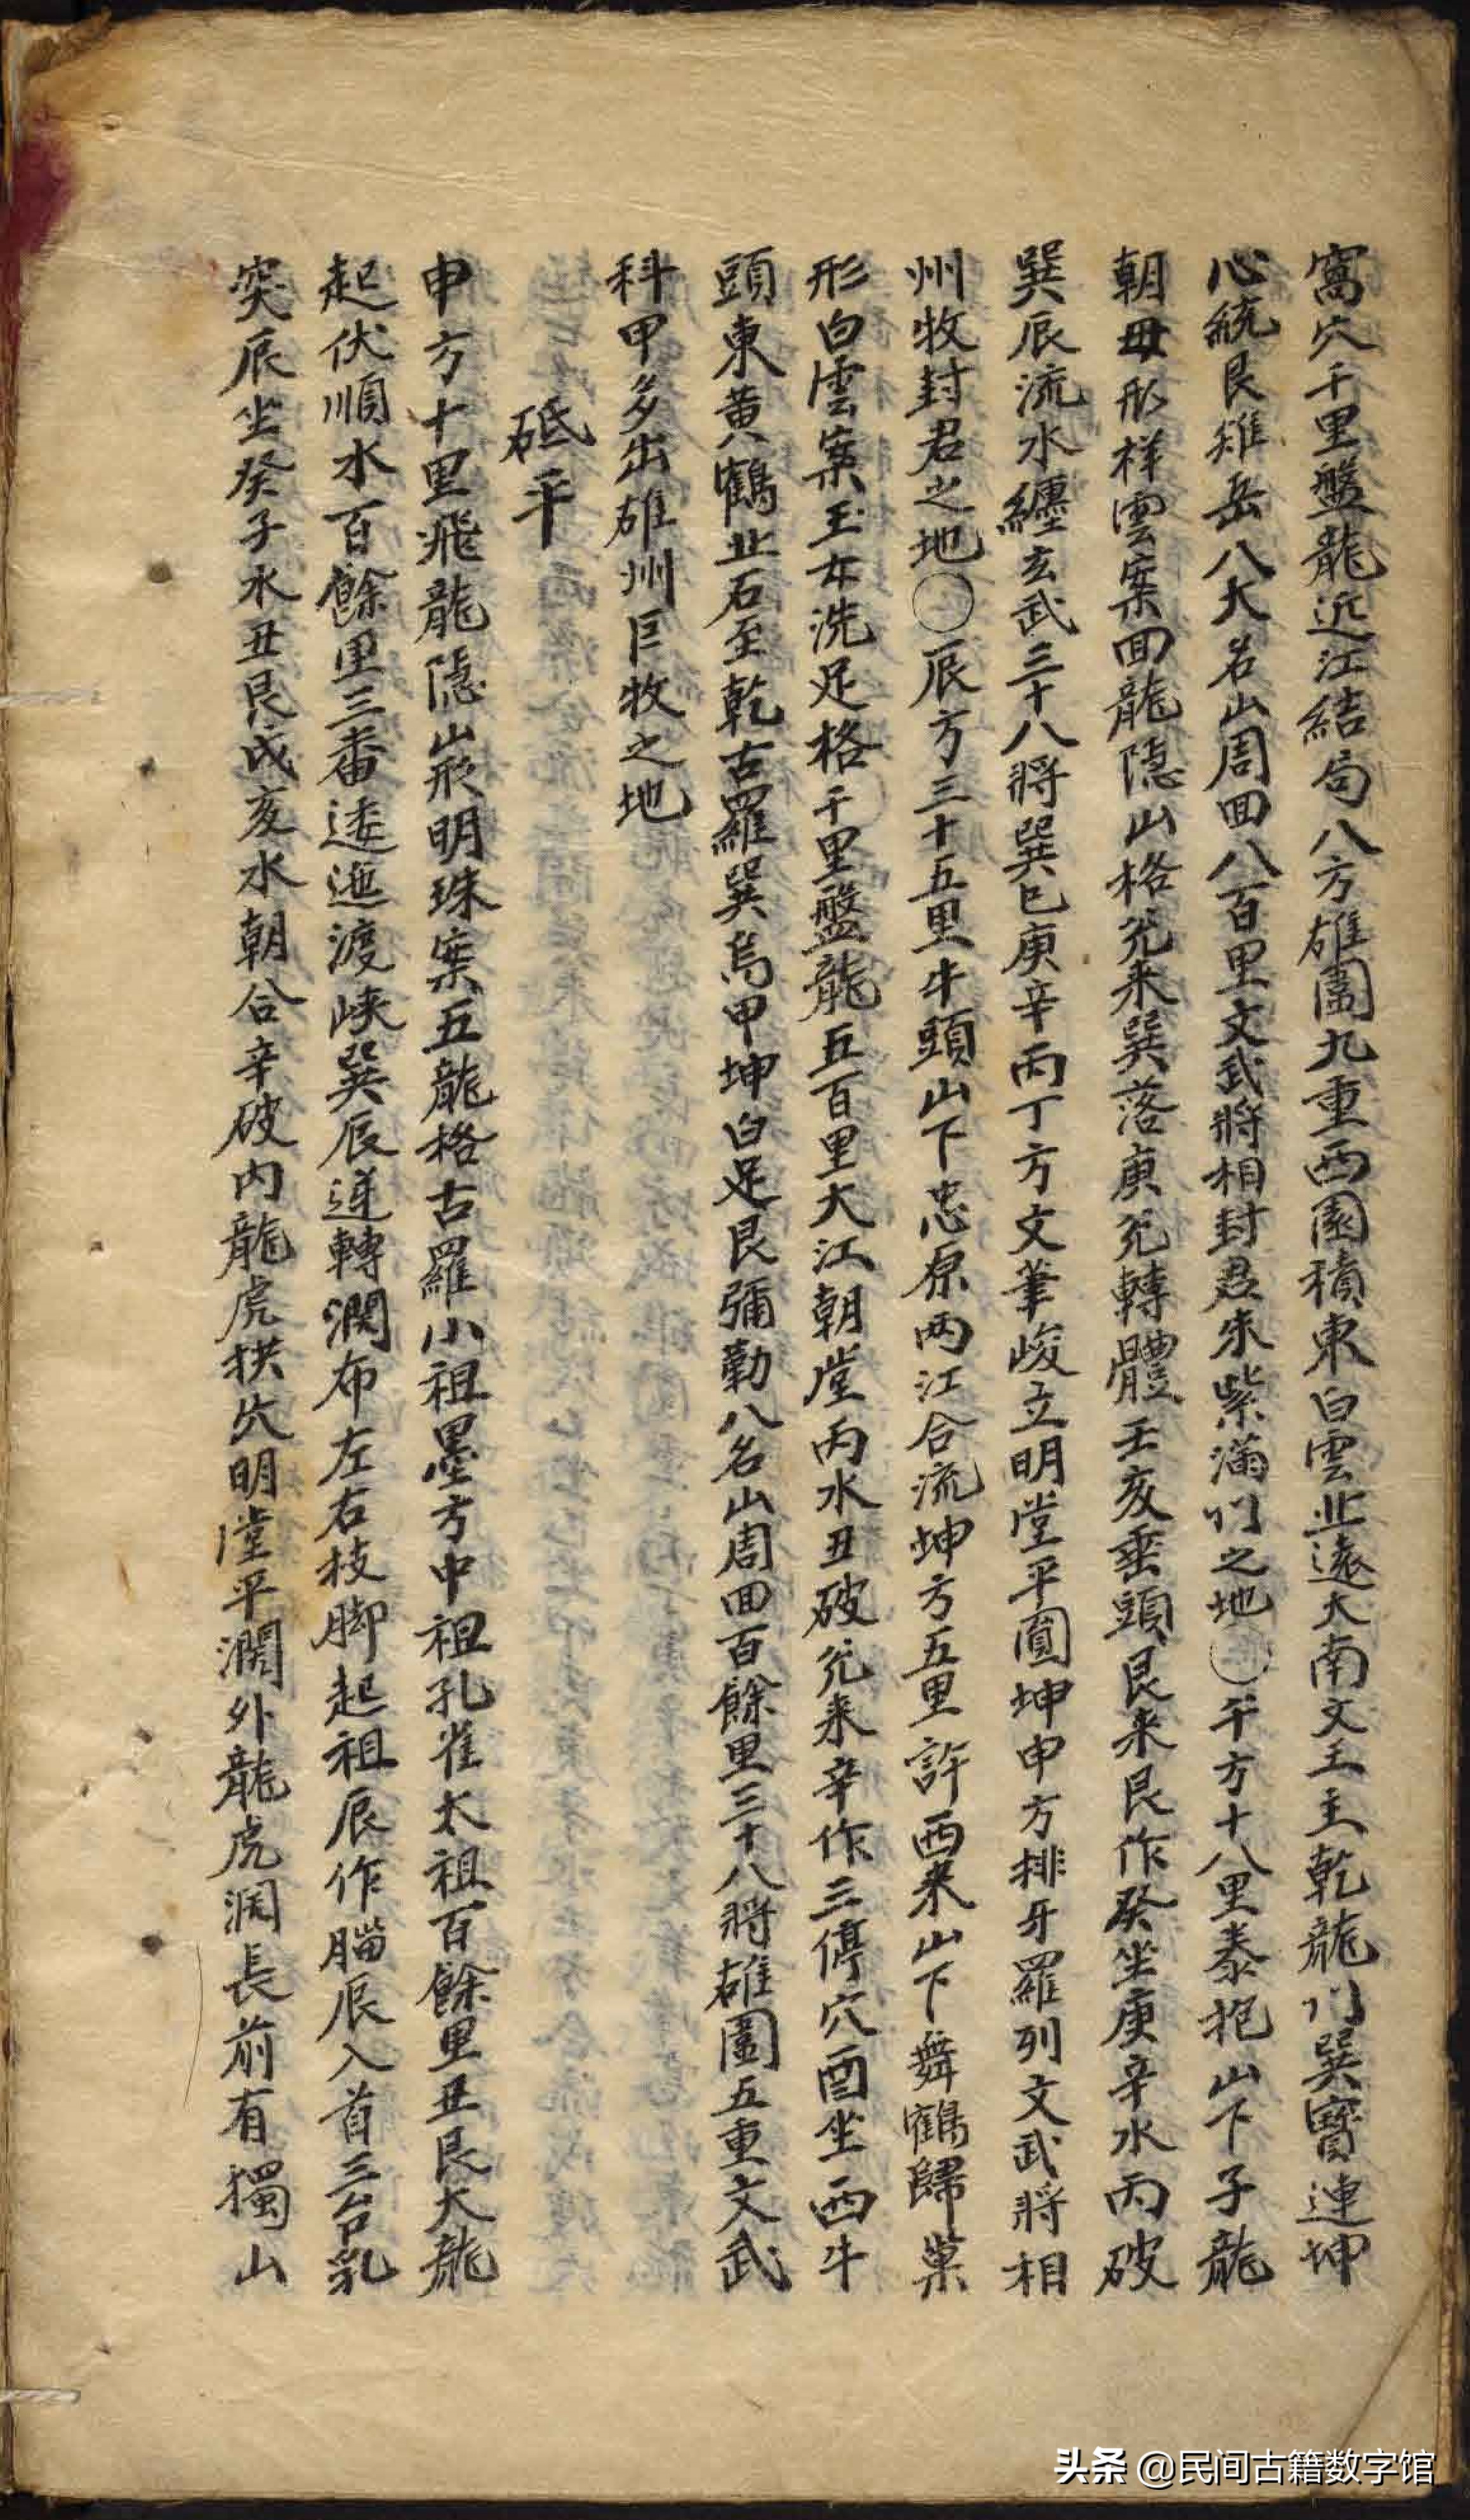 窩穴千里盤龍近江結局八方雄圍九重西園積東白雲北遠大南文主主乾龍門巽寶連坤
心統艮雉岳八大名山周回八百里文武將相封君朱紫滿門之地○午方十八里泰抱山下子龍
朝母形祥雲案回龍隱山格兌來巽落庚兌轉體壬亥垂頭艮來艮作癸坐庚辛水丙破
巽辰流水纏玄武三十八將巽巳庚辛丙丁方文筆峻立明堂平圓坤申方排牙羅列文武將相
州牧封君之地○辰方三十五里牛頭山下忠原兩江合流坤方五里許西來山下舞鶴歸巢
形白雲案玉女洗足格千里盤龍五百里大江朝堂丙水丑破兌來辛作三停穴酉坐西牛
頭東黃鶴北石至乾古羅巽烏甲坤白足艮彌勒八名山周回百餘里三十八將雄圍五重文武
科甲多出雄州巨牧之地
砥平
申方十里飛龍隱山形明珠案五龍格古羅小祖墨方中祖孔雀太祖百餘里丑艮大龍
起伏順水百餘里三番逶迤渡峽巽辰逆轉濶布左右枝脚起祖辰作腦辰入首三台乳
突辰坐癸子水丑艮戌亥水朝合辛破內龍虎拱穴明堂平濶外龍虎濶長前有獨山
头条 @民间古籍数字馆